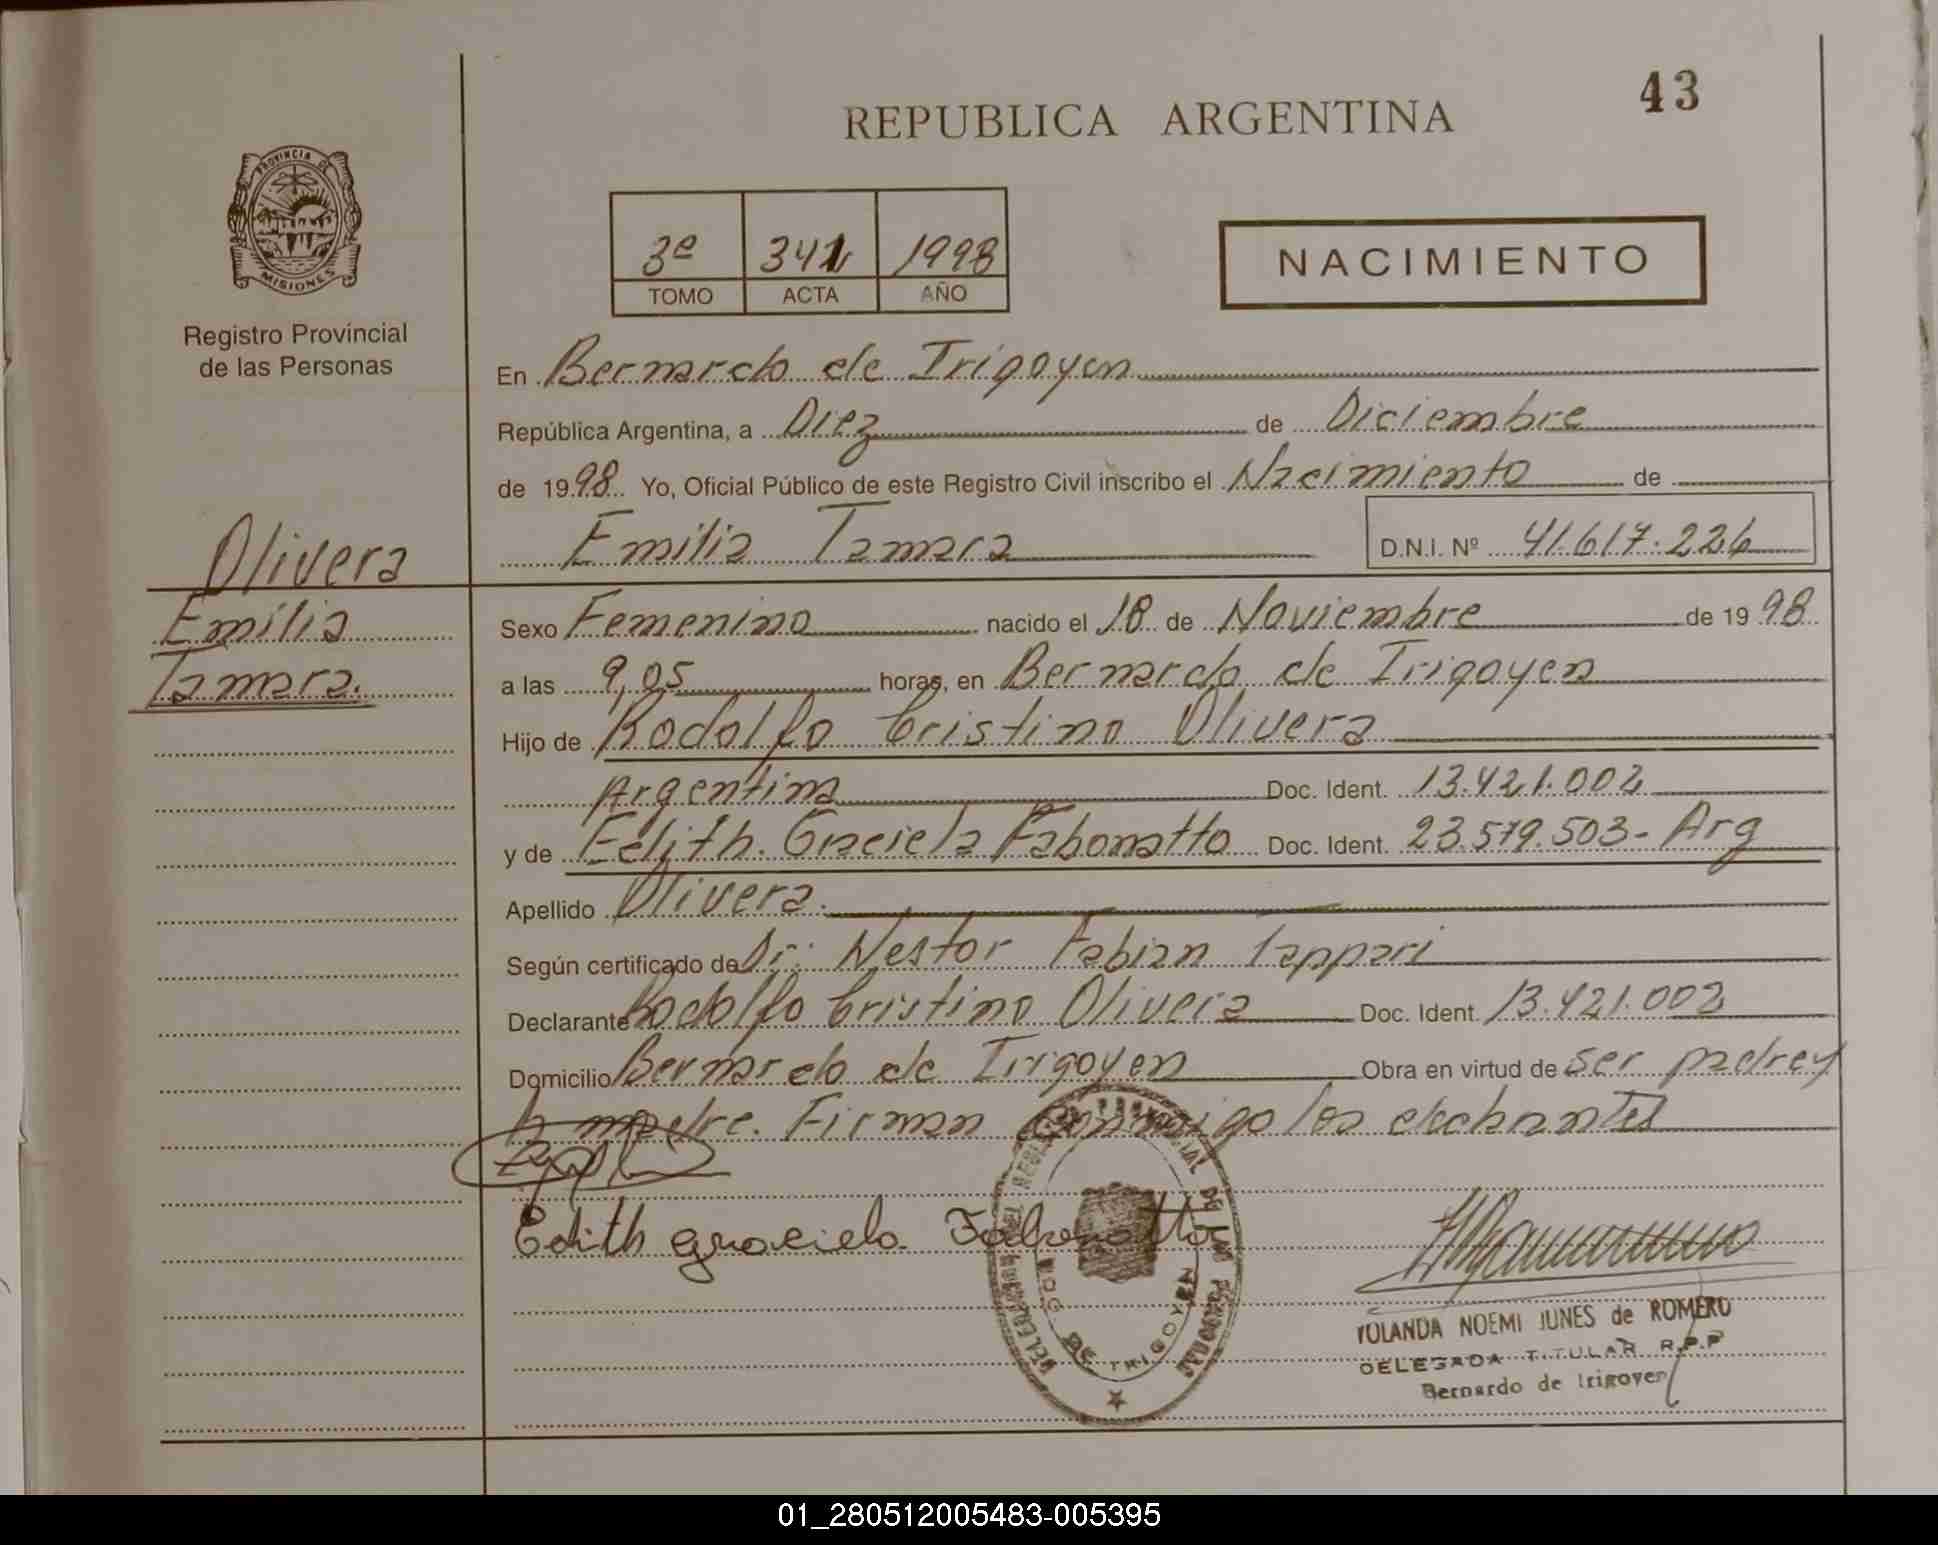 43
REPUBLICA ARGENTINA
PROVINCIA DE
MISIONES
Registro Provincial
de las Personas
3º 1998
TOMO ACTA AÑO
NACIMIENTO
En Bernardo de Irigoyen
República Argentina, a Diez de Diciembre
de 1998 Yo, Oficial Público de este Registro Civil inscribo el Nacimiento de
Emilia Tamara D.N.I. Nº 41.617.226
Olivera
Emilia
Tamara.
Sexo Femenino nacido el 18 de Noviembre de 1998
a las 9,05 horas, en Bernardo de Irigoyen
Hijo de Rodolfo Cristino Olivera
Argentina Doc. Ident. 13.421.002
y de Edith Graciela Fabonatto Doc. Ident. 23.579.503- Arg
Apellido Olivera.
Según certificado de Dr: Nestor Fabian Tappari
Declarante Rodolfo Cristino Olivera Doc. Ident. 13.421.002
Domicilio Bernardo de Irigoyen Obra en virtud de ser padre y
madre. Firman conmigo los
Edith graciela Fabonatto
DELEGACION DEL REGISTRO PROVINCIAL DE LAS PERSONAS
BDO. DE IRIGOYEN
YOLANDA NOEMI JUNES de ROMERO
DELEGADA TITULAR R.P.P
Bernardo de Irigoyen
01_280512005483-005395